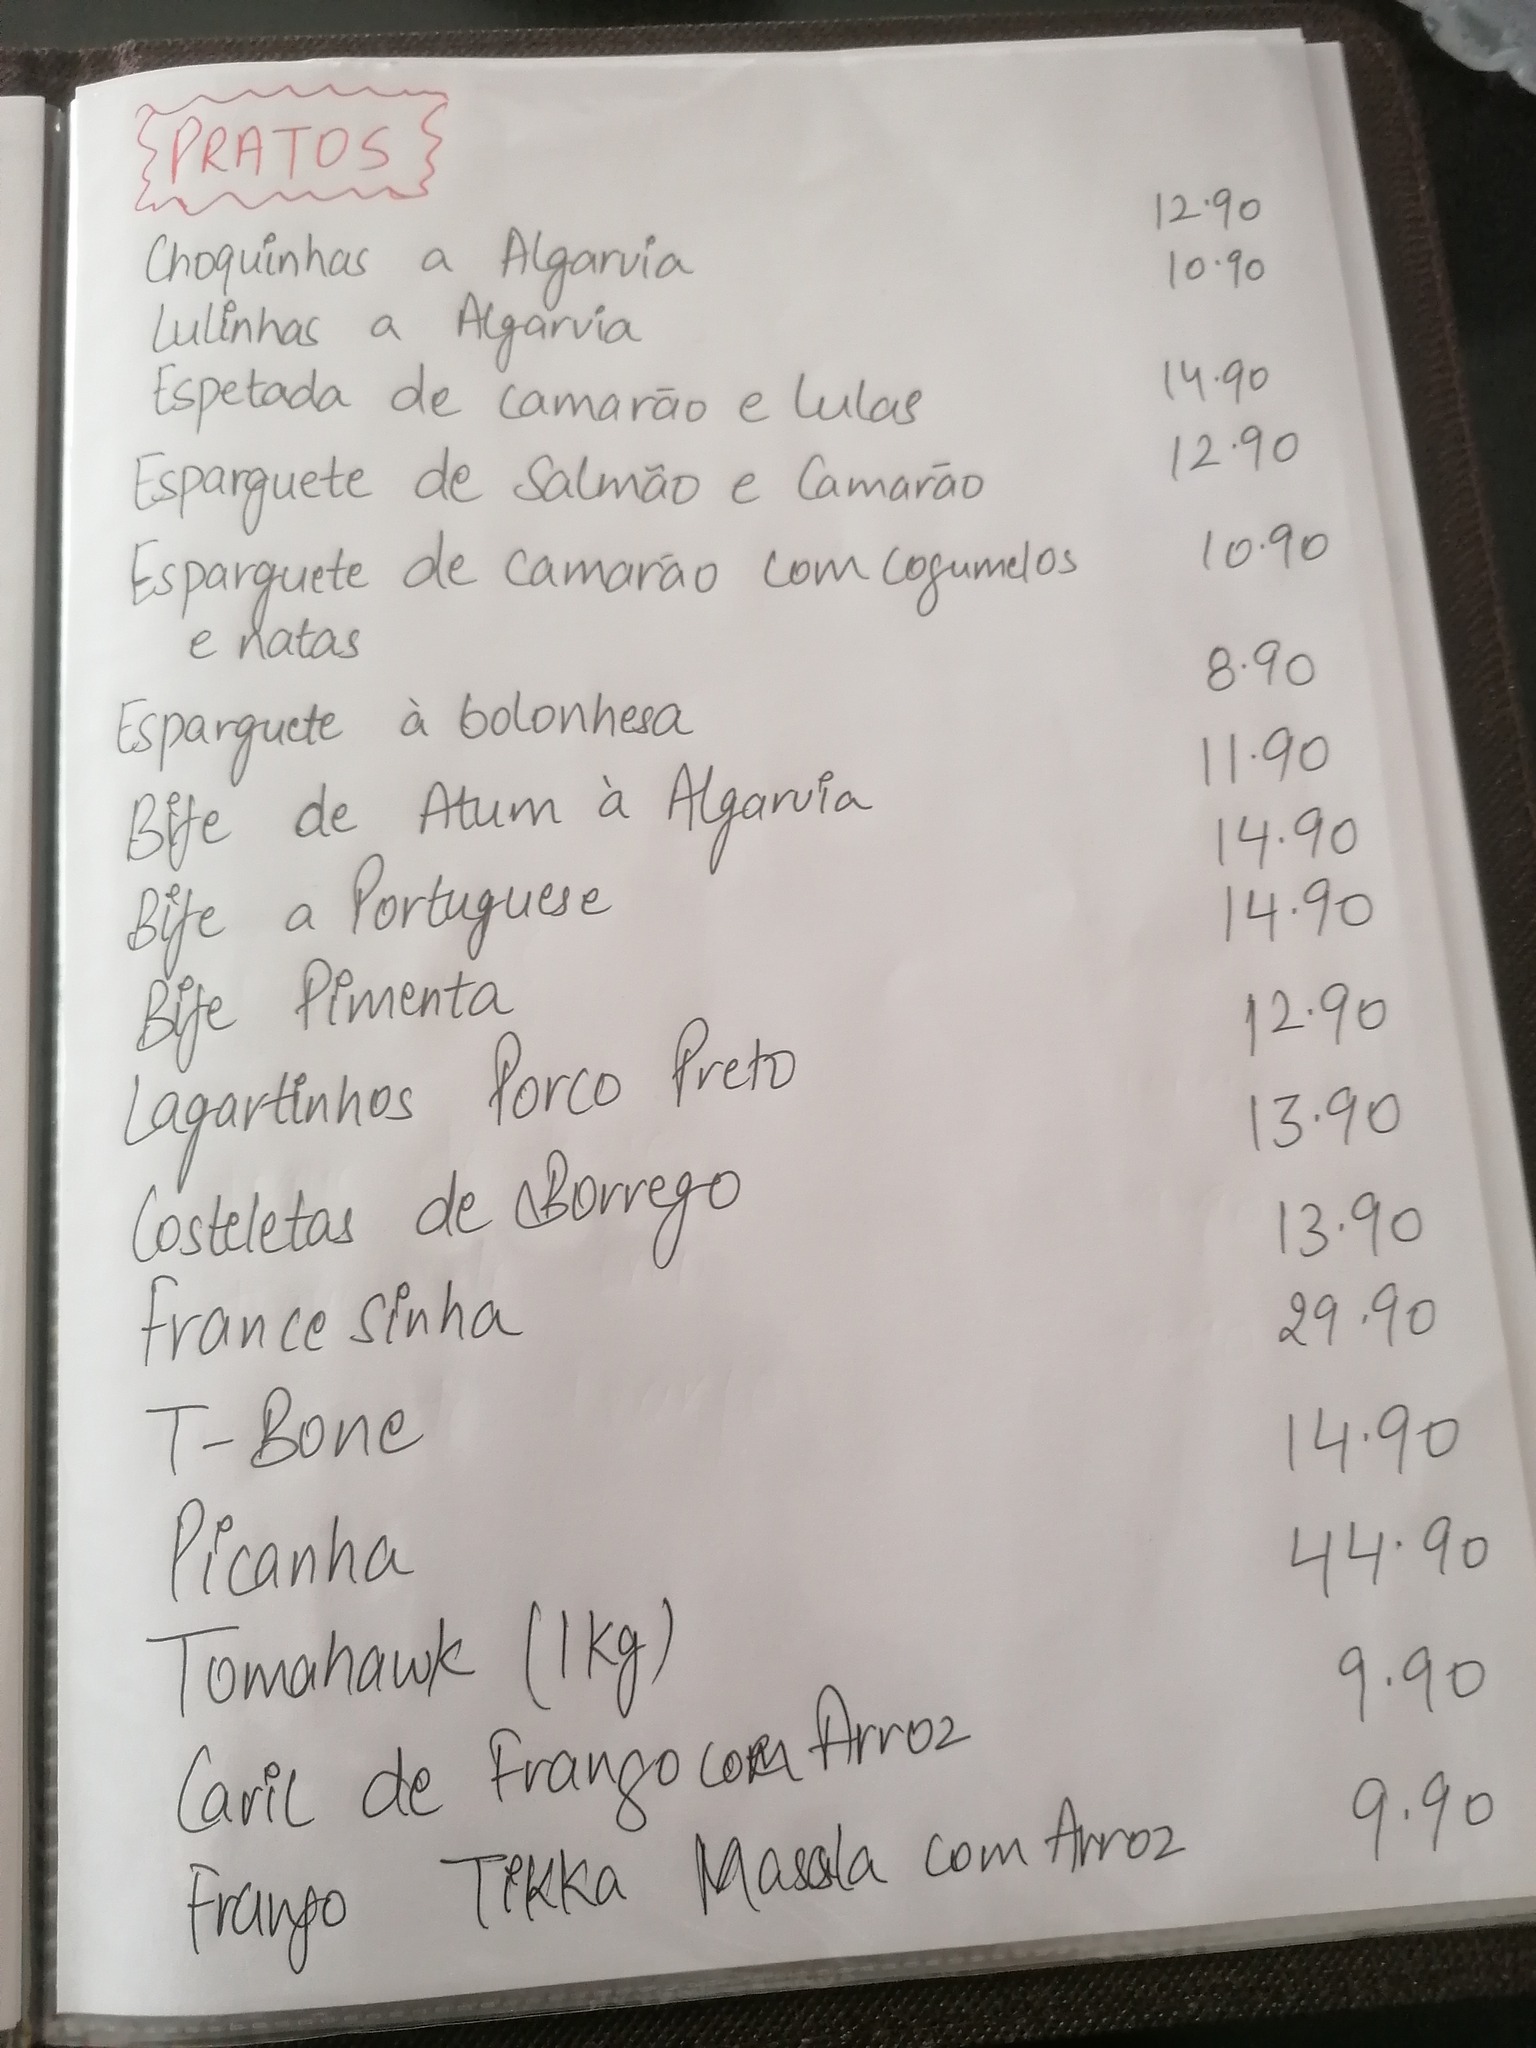 PRATOS
Choquinhas a Algarvia 12.90
Lulinhas a Algarvia 10.90
Espetada de camarão e lulas 14.90
Esparguete de Salmão e Camarão 12.90
Esparguete de camarão com cogumelos 10.90
e natas
Esparguete à bolonhesa 8.90
Bife de Atum à Algarvia 11.90
Bife a Portuguese 14.90
Bife Pimenta 14.90
Lagartinhos Porco Preto 12.90
Costeletas de Borrego 13.90
Francesinha 13.90
T-Bone 29.90
Picanha 14.90
Tomahawk (1kg) 44.90
Caril de Frango com Arroz 9.90
Frango Tikka Massla com Arroz 9.90